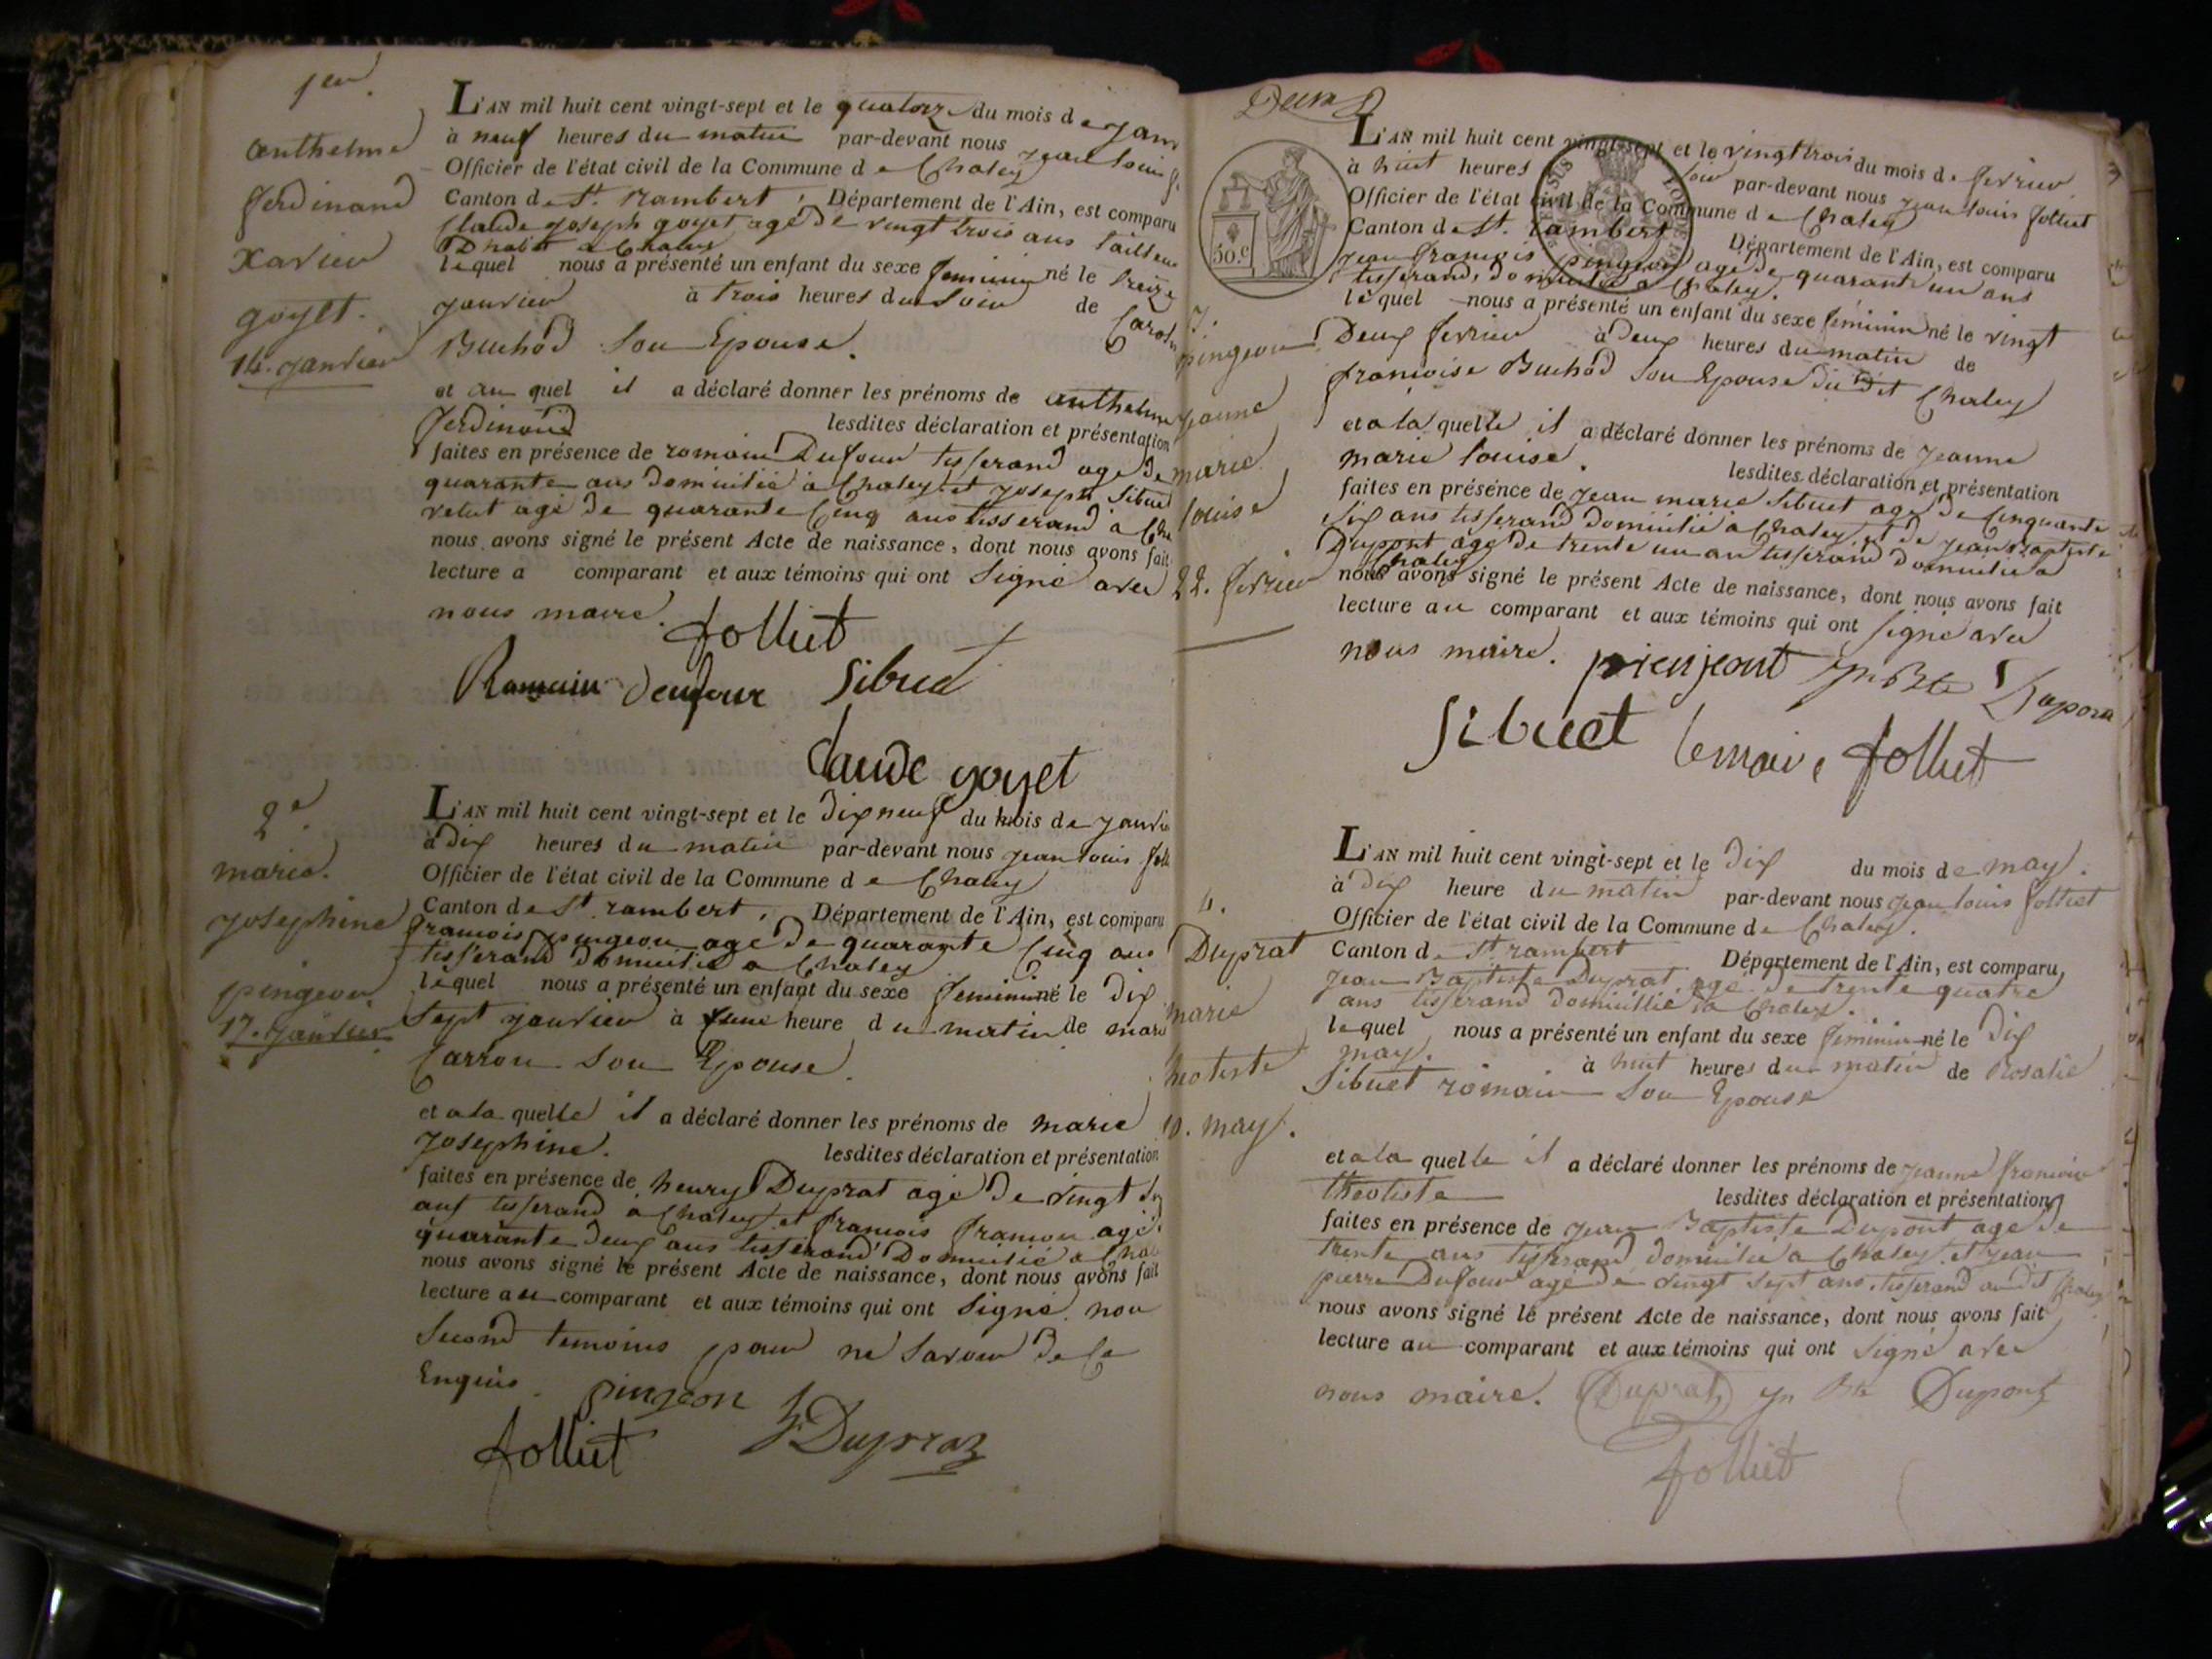 1er.
anthelme
ferdinand
Xavier
goyet.
14. janvier
L'AN mil huit cent vingt-sept et le quatorze du mois de janv
à neuf heures du matin par-devant nous jean louis f
Officier de l'état civil de la Commune de Chaley
Canton de St. rambert, Département de l'Ain, est comparu
Claude joseph goyet agé de vingt trois ans tailleur
a Chaley
lequel nous a présenté un enfant du sexe feminin né le treize
janvier à trois heures du soir de
Buchod son Epouse.
et au quel il a déclaré donner les prénoms de anthelme
ferdinand lesdites déclaration et présentation
faites en présence de romain Dufour tisserand agé de
quarante ans domicilié a Chaley et joseph Sibuet
agé de quarante Cinq ans tisserand a Cha
nous avons signé le présent Acte de naissance, dont nous avons fait
lecture a comparant et aux témoins qui ont Signé avec
nous maire. folliet
Romain Sibuet
Claude goyet
2e.
marie
Josephine
pingeon
17. janvier
L'AN mil huit cent vingt-sept et le dix neuf du mois de janvie
à dix heures du matin par-devant nous jean louis foll
Officier de l'état civil de la Commune de Chaley
Canton de St. rambert, Département de l'Ain, est comparu
francois pingeon agé de quarante Cinq ans
tisserand domicilié a Chaley
lequel nous a présenté un enfant du sexe feminin né le dix
Sept janvier à une heure du matin de marie
Carron Son Epouse
et a la quelle il a déclaré donner les prénoms de marie
Josephine. lesdites déclaration et présentation
faites en présence de henry Duprat agé de vingt
ans tisserand a Chaley et francois francon agé
quarante deux ans tisserand Domicilié a Chale
nous avons signé le présent Acte de naissance, dont nous avons fait
lecture au comparant et aux témoins qui ont Signé non
Second temoins pour ne Savoir de Ce
Enquis. pingeon
folliet Dupraz
50.C
3.
pingeon
jeanne
marie
louise
22. fevrier
L'AN mil huit cent vingt-sept et le vingt trois du mois de fevrier
à huit heures soir par-devant nous jean louis folliet
Officier de l'état civil de la Commune de Chaley
Canton de St. rambert Département de l'Ain, est comparu
jean francois pingeon agé de quarante un ans
tisserand, domicilié a Chaley.
lequel nous a présenté un enfant du sexe feminin né le vingt
Deux fevrier à Deux heures du matin de
francoise Buchod Son Epouse du dit Chaley
et a la quelle il a déclaré donner les prénoms de jeanne
marie louise. lesdites déclaration et présentation
faites en présence de jean marie Sibuet agé de Cinquante
Six ans tisserand domicilié a Chaley et de jean Baptiste
Dupont agé de trente un an tisserand domicilié a
Chaley
nous avons signé le présent Acte de naissance, dont nous avons fait
lecture au comparant et aux témoins qui ont signé avec
nous maire. pienjeont jn Bte Dupon
Sibuet le maire folliet
4.
Duprat
marie
10. may.
L'AN mil huit cent vingt-sept et le Dix du mois de may.
à dix heure du matin par-devant nous jean louis folliet
Officier de l'état civil de la Commune de Chaley.
Canton de St rambert Département de l'Ain, est comparu
jean Baptiste Duprat agé de trente quatre
ans tisserand domicillié a Chaley.
lequel nous a présenté un enfant du sexe feminin né le Dix
may. à huit heures du matin de Rosalie
Sibuet romain Son Epouse
et a la quelle il a déclaré donner les prénoms de jeanne francoise
theotiste lesdites déclaration et présentation
faites en présence de jean Baptiste Dupont agé de
trente ans tisserand domicilié a Chaley et jean
pierre Dufour agé de vingt Sept ans tisserand au dit Chaley
nous avons signé le présent Acte de naissance, dont nous avons fait
lecture au comparant et aux témoins qui ont signé avec
nous maire. Duprat jn Bte Dupont
folliet